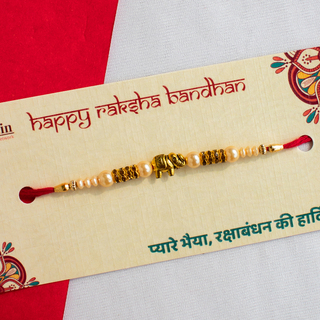 in
happy raksha bandhan
प्यारे भैया, रक्षाबंधन की